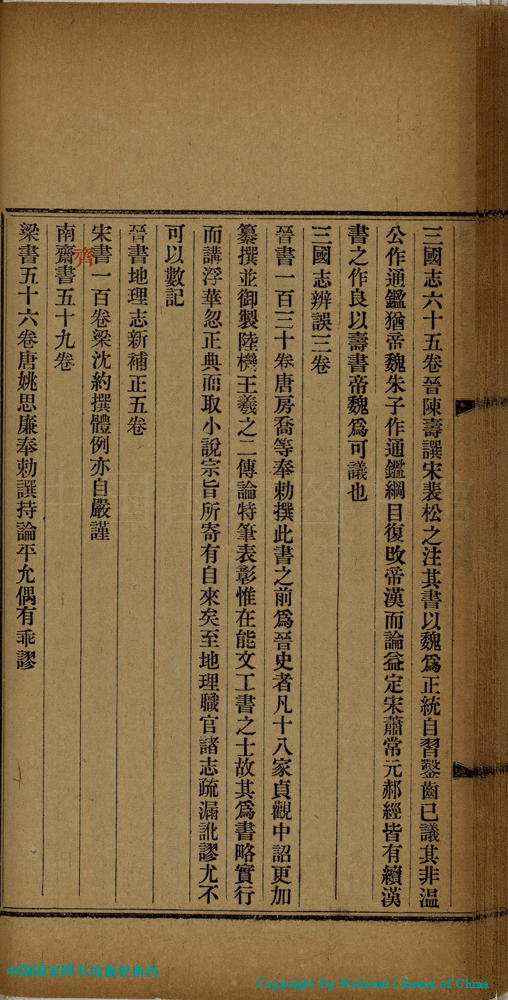 三國志六十五卷晉陳壽譔宋裴松之注其書以魏爲正統自習鑿齒已議其非温
公作通鑑猶帝魏朱子作通鑑綱目復改帝漢而論益定宋蕭常元郝經皆有續漢
書之作良以壽書帝魏爲可議也
三國志辨誤三卷
晉書一百三十卷唐房喬等奉勅撰此書之前爲晉史者凡十八家貞觀中詔更加
纂撰並御製陸機王羲之二傳論特筆表彰惟在能文工書之士故其爲書略實行
而講浮華忽正典而取小說宗旨所寄有自來矣至地理職官諸志疏漏訛謬尤不
可以數記
晉書地理志新補正五卷
宋書一百卷梁沈約撰體例亦自嚴謹
南齋書五十九卷
齊
梁書五十六卷唐姚思廉奉勅譔持論平允偶有乖謬
中国国家图书馆版权所有
Copyright By National Library of China